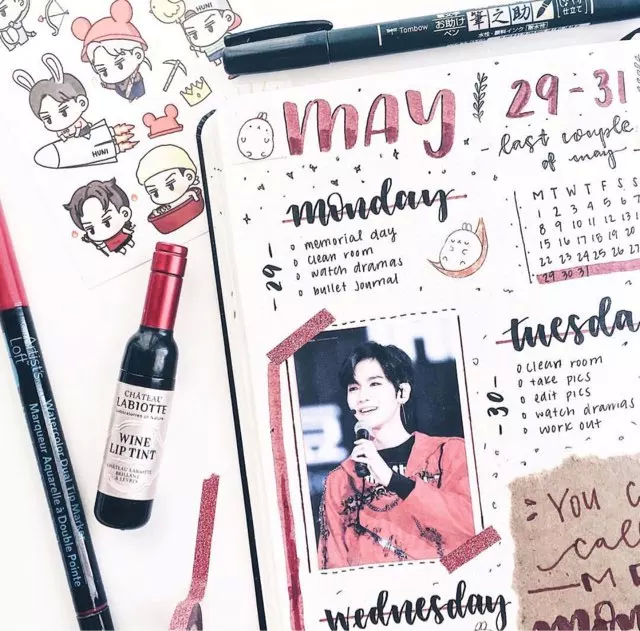 HUNI
HUNI
Tombow
お助けペン
筆之助
MAY
29-31
last couple
of may
monday
-29-
o memorial day
o clean room
o watch dramas
o bullet journal
M T W T F S S
1 2 3 4 5 6 7
8 9 10 11 12 13
15 16 17 18 19 20
22 23 24 25 26 27
29 30 31
tuesda
-30-
o clean room
o take pics
o edit pics
o watch dramas
o work out
Artist's
Loft
Watercolor Dual Tip Marker
Marqueur Aquarelle à Double Pointe
CHÂTEAU
LABIOTTE
WINE
LIP TINT
CHÂTEAU LABIOTTE
YOU C
call
wednesday